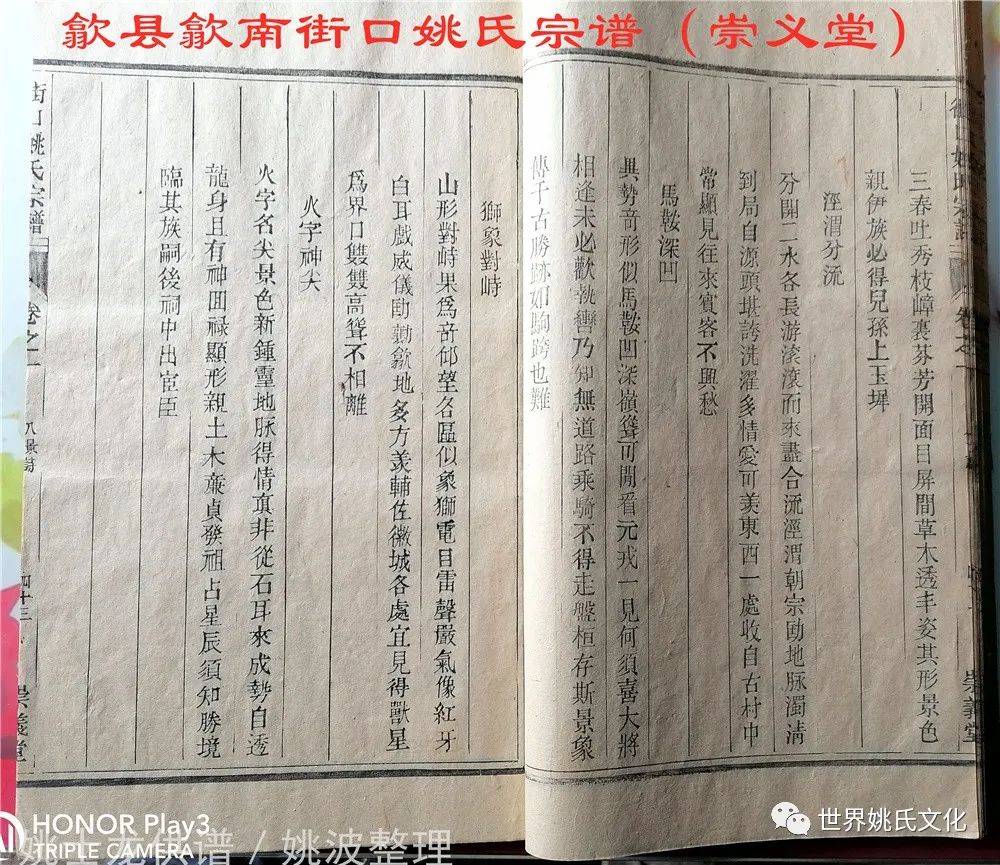 歙县歙南街口姚氏宗谱（崇义堂）
三春吐秀枝嶂裏芬芳開面目屏間草木透丰姿其形景色
親伊族必得兒孫上玉墀
涇渭分流
分開二水各長游滾滾而來盡合流涇渭朝宗動地脉濁清
到局自源頭堪誇洗濯多情愛可羡東西一處收自古村中
常顯見往來賓客不興愁
馬鞍深凹
異勢奇形似馬鞍凹深嶺聳可閒看元戎一見何須喜大將
相逢未必歡執轡乃知無道路乘騎不得走盤桓存斯景象
傳千古勝跡如駒跨也難
崇義堂
獅象對峙
山形對峙果爲奇仰望各區似象獅電目雷聲嚴氣像紅牙
白耳戲威儀助勷歙地多方羡輔佐徽城各處宜見得獸星
爲界口雙雙高聳不相離
火字神尖
火字名尖景色新鍾靈地脉得情真非從石耳來成勢自透
龍身且有神面祿顯形親土木廉貞發祖占星辰須知勝境
臨其族嗣後祠中出宦臣
街口姚氏宗譜
卷之一
八景詩
四十三
崇義堂
HONOR Play3
TRIPLE CAMERA
姚波整理
世界姚氏文化